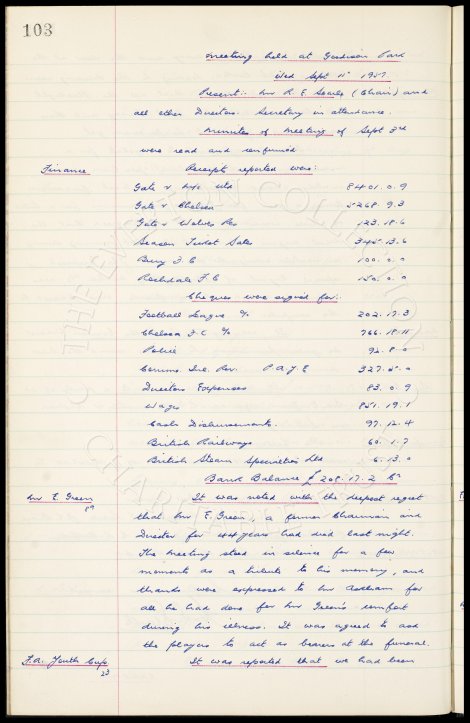 103
Meeting held at Goodison Park
Wed Sept 11th 1957.
Present:- Mr R. E. Searle (Chair) and
all other Directors. Secretary in attendance.
Minutes of Meeting of Sept 3rd
were read and confirmed.
Finance
Receipts reported were:
Gate v Utd 8401.0.9
Gate v Chelsea 5268.9.3
Gate v Wolves Res 123.18.6
Season Ticket Sales 345.13.6
Bury F.C 100.0.0
Rochdale F.C 150.0.0
Cheques were signed for:
Football League % 202.17.3
Chelsea F.C % 766.18.11
Police 92.8.0
Comms. Inl. Rev. P A Y E 327.5.0
Directors Expenses 83.0.9
Wages 851.19.1
Cash Disbursements. 97.12.4
British Railways 60.1.7
British Steam Specialties Ltd 6.13.0
Bank Balance £ 208.17.2 Cr
Mr E. Green
It was noted with the deepest regret
that Mr E. Green, a former Chairman and
Director for 44 years had died last night.
The Meeting stood in silence for a few
moments as a tribute to his memory, and
thanks were expressed to Mr for
all he had done for Mr Green's comfort
during his illness. It was agreed to ask
the players to act as bearers at the funeral.
F.A. Youth Cup
23
It was reported that we had been
THE EVERTON COLLECTION